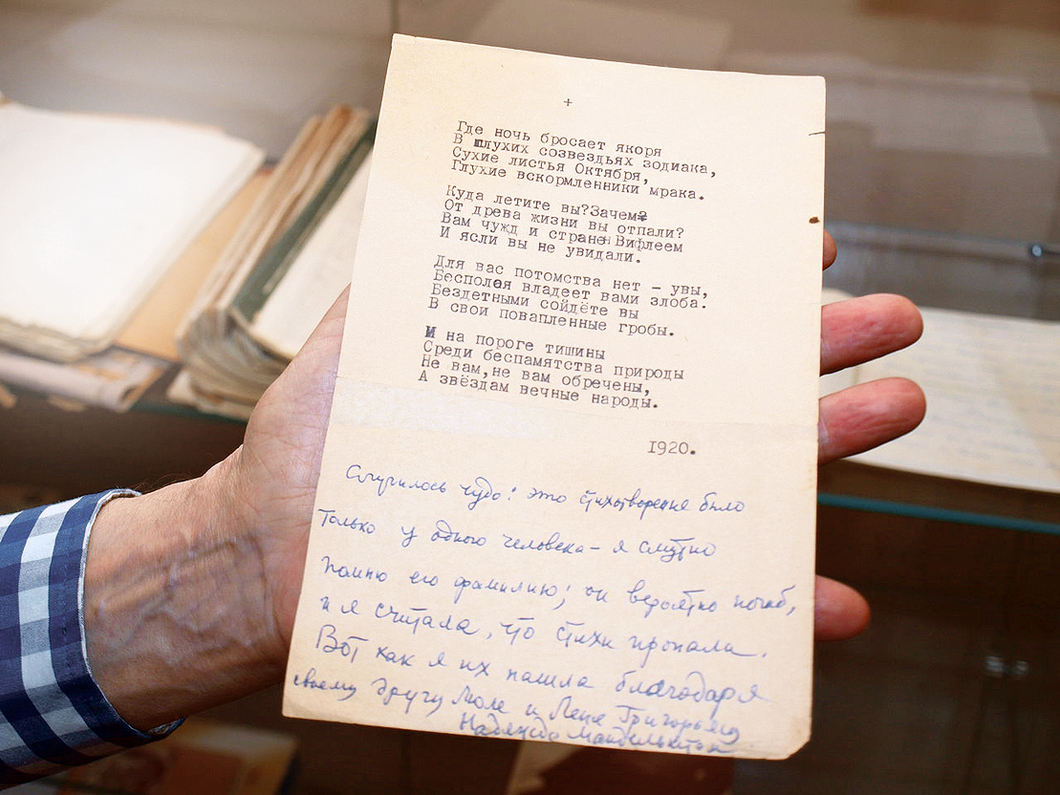 +
Где ночь бросает якоря
В глухих созвездьях зодиака,
Сухие листья Октября,
Глухие вскормленники мрака.
Куда летите вы?Зачем?
От древа жизни вы отпали?
Вам чужд и странен Вифлеем
И ясли вы не увидали.
Для вас потомства нет - увы,
Бесполая владеет вами злоба.
Бездетными сойдёте вы
В свои повапленные гробы.
И на пороге тишины
Среди беспамятства природы
Не вам,не вам обречены,
А звёздам вечные народы.
1920.
Случилось чудо: это стихотворение было
только у одного человека – я смутно
помню его фамилию; он вероятно погиб,
и я считала, что стихи пропали.
Вот как я их нашла благодаря
своему другу и Лене Григорьеву
Надежда Мандельштам